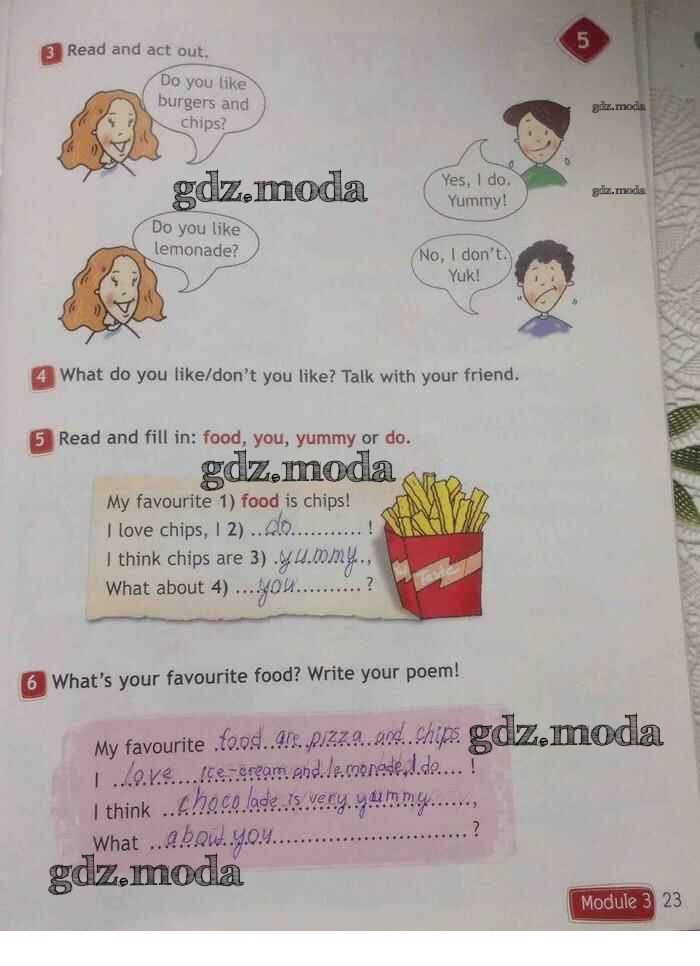 5
3 Read and act out.
Do you like
burgers and
chips?
gdz.moda
gdz.moda
Yes, I do.
Yummy!
gdz.moda
Do you like
lemonade?
No, I don't.
Yuk!
4 What do you like/don't you like? Talk with your friend.
5 Read and fill in: food, you, yummy or do.
gdz.moda
My favourite 1) food is chips!
I love chips, I 2) ..do............ !
I think chips are 3) .yummy.,
What about 4) ....you.......... ?
6 What's your favourite food? Write your poem!
My favourite food are pizza and chips
gdz.moda
I love ice-cream and lemonade, I do !
I think chocolade is very yummy ,
What about you ?
gdz.moda
Module 3 23